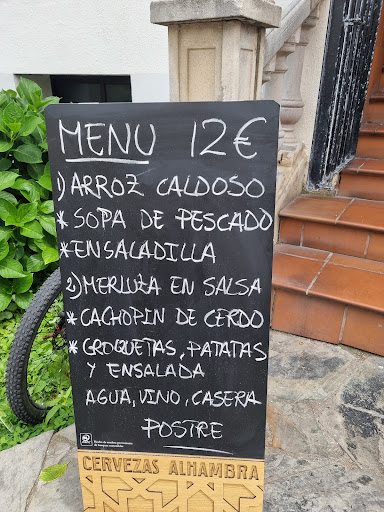 MENU 12€
1) ARROZ CALDOSO
* SOPA DE PESCADO
* ENSALADILLA
2) MERLUZA EN SALSA
* CACHOPIN DE CERDO
* CROQUETAS, PATATAS
Y ENSALADA
AGUA, VINO, CASERA
POSTRE
CERVEZAS ALHAMBRA